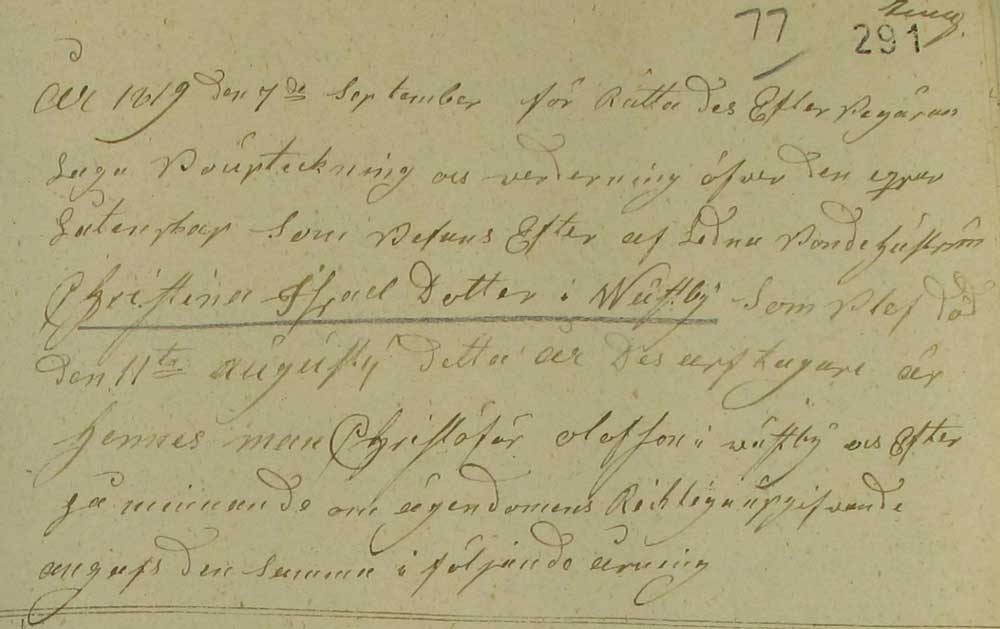 77 291
År 1819 den 7de September för Rätta des Efter Begäran
Laga Boupteckning as verderning öfver den
qvarlåtenskap Som Befans Efter af Ledna Bonde hústrún
Christina Israel Dotter i Wästbÿ Som Blef död
den 11te aúgústÿ detta år Des arftagare är
hennes man Christöfär olofson i wästbÿ as Efter
på minnande om ägendomens Ricktega úpgifvande
angafs den Samma i följande årning